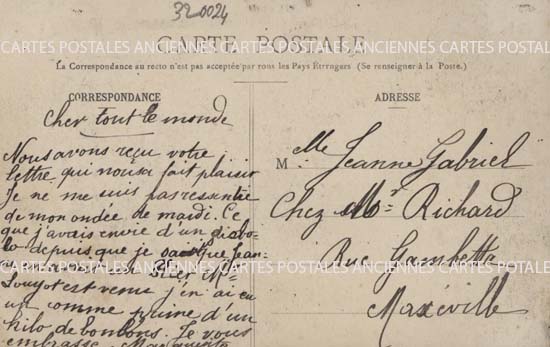 32-0024
CARTE POSTALE
CARTES POSTALES ANCIENNES CARTES POSTALES ANCIENNES CARTES POSTALES
La Correspondance au recto n'est pas acceptée par tous les Pays Etrangers (Se renseigner à la Poste.)
CORRESPONDANCE
Cher tout le monde
Nous avons reçu votre
lettre qui nous a fait plaisir
Je ne me suis pas ressentie
de mon ondée de mardi. Ce
que j'avais envie d'un diabo-
lo depuis que je que Jean-
CARTES POSTALES ANCIENNES CARTES POSTALES ANCIENNES CARTES POSTALES
est venu j'en ai eu
un comme prime d'un
kilo de bonbons. Je vous
embrasse Marguerite
ADRESSE
M.lle Jeanne Gabriel
Chez Mr Richard
Rue Gambetta
Maxéville